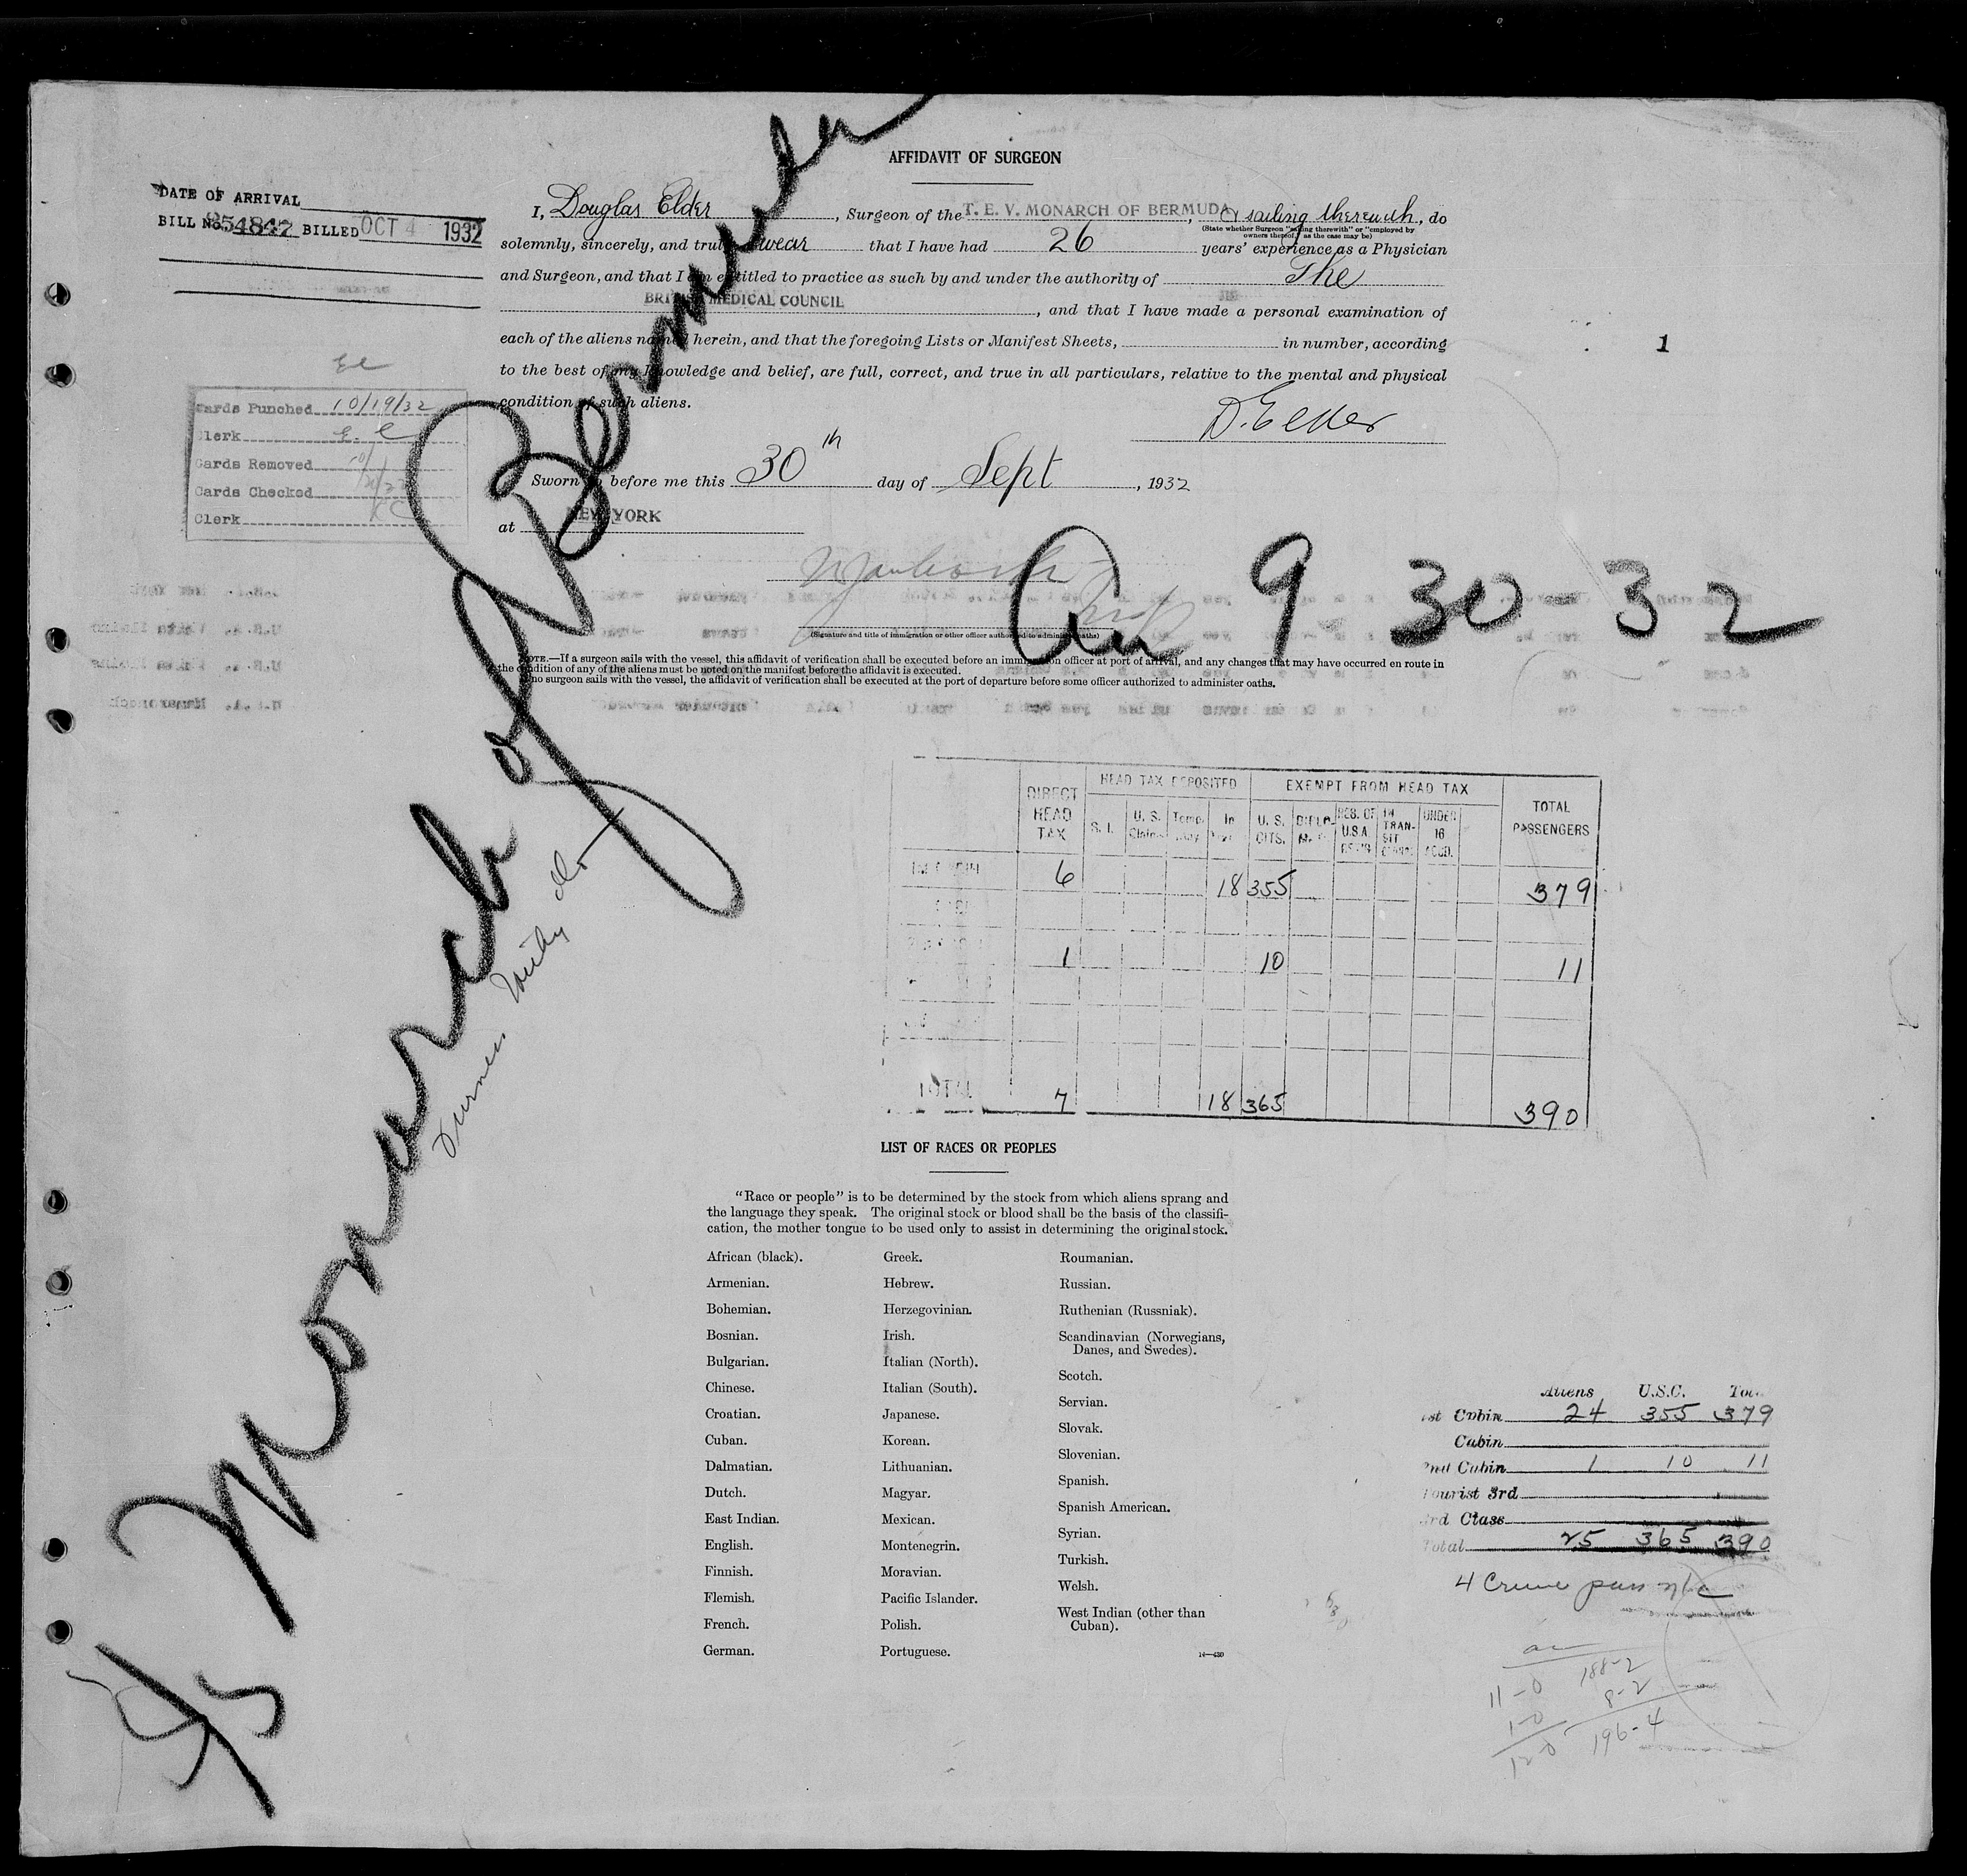 AFFIDAVIT OF SURGEON
DATE OF ARRIVAL
BILL No. 54847 BILLED OCT 4 1932
I, Douglas Elder, Surgeon of the T. E. V. MONARCH OF BERMUDA, sailing therewith, do
(State whether Surgeon "sailing therewith" or "employed by owners thereof," as the case may be)
solemnly, sincerely, and truly swear that I have had 26 years' experience as a Physician
and Surgeon, and that I am entitled to practice as such by and under the authority of The
BRITISH MEDICAL COUNCIL, and that I have made a personal examination of
each of the aliens named herein, and that the foregoing Lists or Manifest Sheets, in number, according
1
to the best of my knowledge and belief, are full, correct, and true in all particulars, relative to the mental and physical
condition of such aliens.
D. Elder
Cards Punched 10/19/32
Clerk E. C
Cards Removed
Cards Checked
Clerk KC
Sworn to before me this 30th day of Sept, 1932
at NEW YORK
Arr 9 30-32
(Signature and title of immigration or other officer authorized to administer oaths)
NOTE.—If a surgeon sails with the vessel, this affidavit of verification shall be executed before an immigration officer at port of arrival, and any changes that may have occurred en route in
the condition of any of the aliens must be noted on the manifest before the affidavit is executed.
If no surgeon sails with the vessel, the affidavit of verification shall be executed at the port of departure before some officer authorized to administer oaths.
S/S Monarch of Bermuda
Furness Withy
DIRECT HEAD TAX
HEAD TAX DEPOSITED
EXEMPT FROM HEAD TAX
TOTAL PASSENGERS
S. I. U. S. Claims Temp. In U. S. CITS. DIPLO- RES. OF U.S.A. IN TRAN- SIT UNDER 16 ACCD.
6 18 355 379
1 10 11
TOTAL 7 18 365 390
LIST OF RACES OR PEOPLES
"Race or people" is to be determined by the stock from which aliens sprang and
the language they speak. The original stock or blood shall be the basis of the classifi-
cation, the mother tongue to be used only to assist in determining the original stock.
African (black).
Armenian.
Bohemian.
Bosnian.
Bulgarian.
Chinese.
Croatian.
Cuban.
Dalmatian.
Dutch.
East Indian.
English.
Finnish.
Flemish.
French.
German.
Greek.
Hebrew.
Herzegovinian.
Irish.
Italian (North).
Italian (South).
Japanese.
Korean.
Lithuanian.
Magyar.
Mexican.
Montenegrin.
Moravian.
Pacific Islander.
Polish.
Portuguese.
Roumanian.
Russian.
Ruthenian (Russniak).
Scandinavian (Norwegians,
Danes, and Swedes).
Scotch.
Servian.
Slovak.
Slovenian.
Spanish.
Spanish American.
Syrian.
Turkish.
Welsh.
West Indian (other than
Cuban).
14—430
Aliens U.S.C. Tot
1st Cabin 24 355 379
Cabin
2nd Cabin 1 10 11
Tourist 3rd
3rd Class
Total 25 365 390
4 Cruise pass
11-0 188-2
1-0 8-2
12-0 196-4